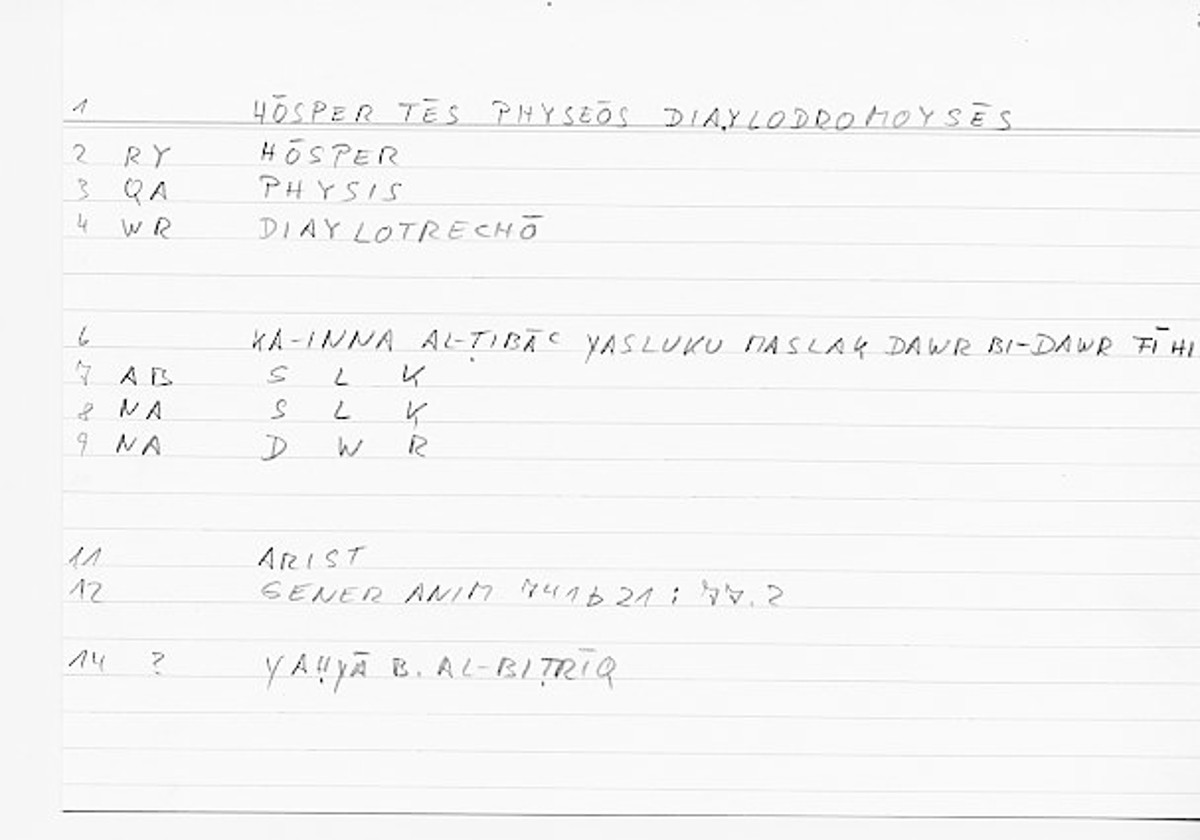 1 HŌSPER TĒS PHYSEŌS DIAYLODROMOYSĒS
2 RY HŌSPER
3 QA PHYSIS
4 WR DIAYLOTRECHŌ
6 KA-INNA AL-ṬIBĀC YASLUKU MASLAK DAWR BI-DAWR FĪHI
7 AB S L K
8 NA S L K
9 NA D W R
11 ARIST
12 GENER ANIM 741b21 ; 77.2
14 ? YAḤYĀ B. AL-BIṬRĪQ